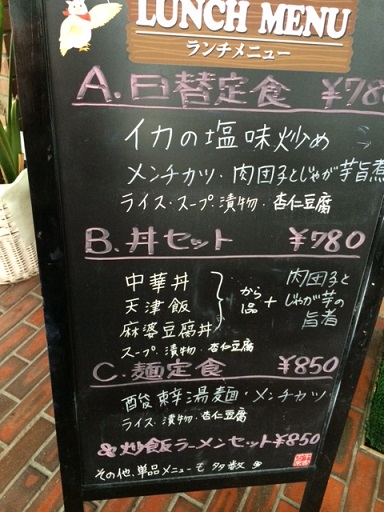 LUNCH MENU
ランチメニュー
A.日替定食 ¥780
イカの塩味炒め
メンチカツ・肉団子とじゃが芋旨煮
ライス・スープ・漬物・杏仁豆腐
B.丼セット ¥780
中華丼
天津飯
麻婆豆腐丼
から一品
+
肉団子と
じゃが芋の
旨煮
スープ・漬物・杏仁豆腐
C.麺定食 ¥850
酸辣湯麺・メンチカツ
ライス・漬物・杏仁豆腐
炒飯ラーメンセット¥850
その他、単品メニューも多数